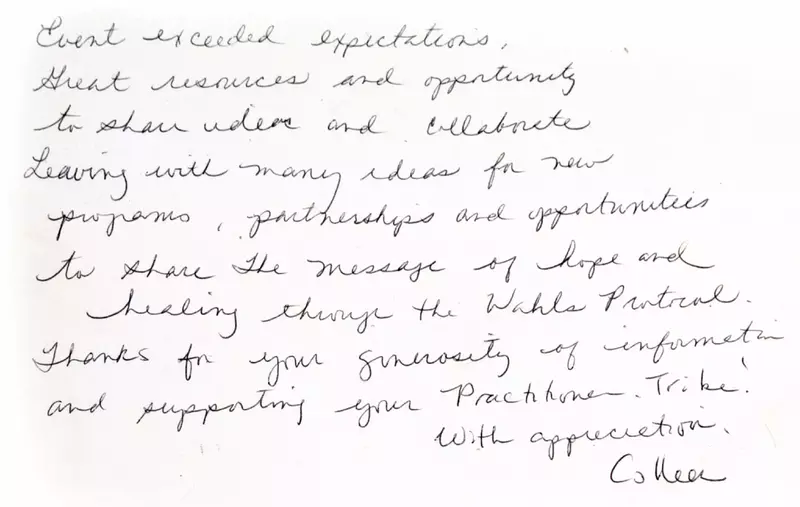 Event exceeded expectations,
Great resources and opportunity
to share ideas and collaborate
Leaving with many ideas for new
programs, partnerships and opportunities
to share the message of hope and
healing through the Wahls Protocol.
Thanks for your generosity of information
and supporting your Practitioner Tribe!
With appreciation,
Colleen